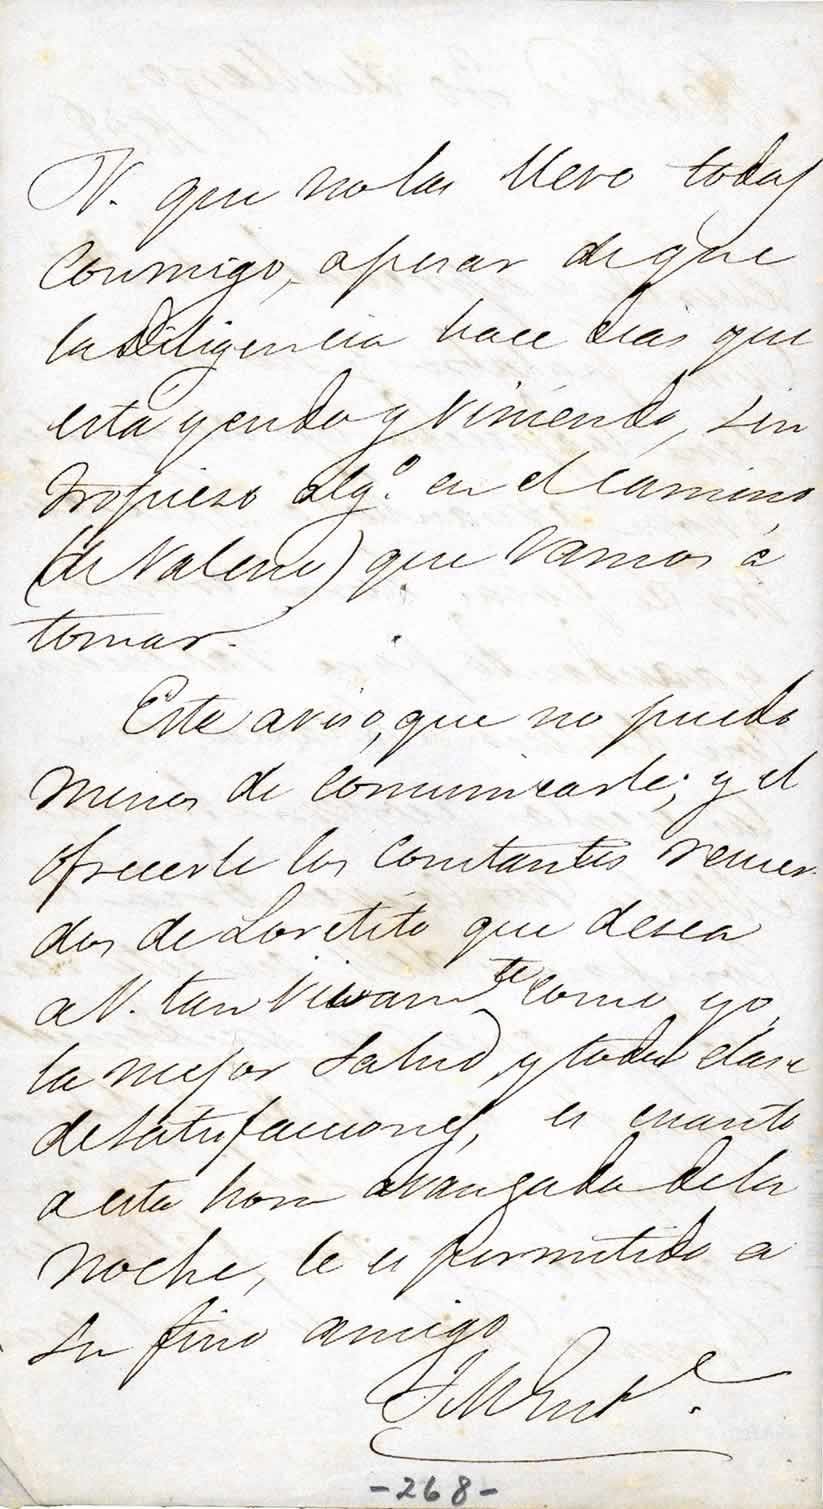 V. que no las llevo todas
conmigo, apesar de que
la Diligencia hace dias que
está yendo y viniendo, sin
tropieso alg.º en el camino
(de Valenc) que vamos á
tomar.
Este aviso, que no puedo
menos de comunicarle; y el
ofrecerle los constantes recuer-
dos de Loretito que desea
a V. tan vivam.te como yo,
la mejor salud, y toda clase
de satisfacciones, es cuanto
a esta hora avanzada de la
noche, le es permitido a
su fino amigo
-268-